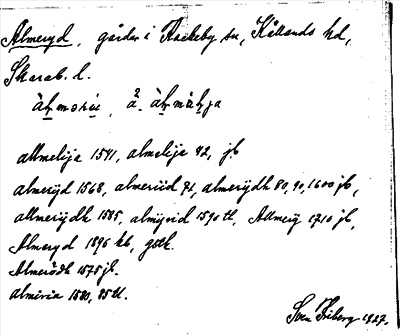 Almeryd, gårdar i Rackeby sn, Kållands hd,
Skarab. l.
àḷmərìe, å² àḷmä̀ḷja
allmelija 1541, almelije 42, jb
almerijd 1568, almeriid 71, almerijdh 80, 90, 1600 jb,
allmerijdh 1585, almijrid 1590 tl, Allmerij 1710 jb,
Almeryd 1896 kb, gstk.
Almerödh 1575 jb.
almiria 1580, 85 tl.
Sven Friberg 1927.